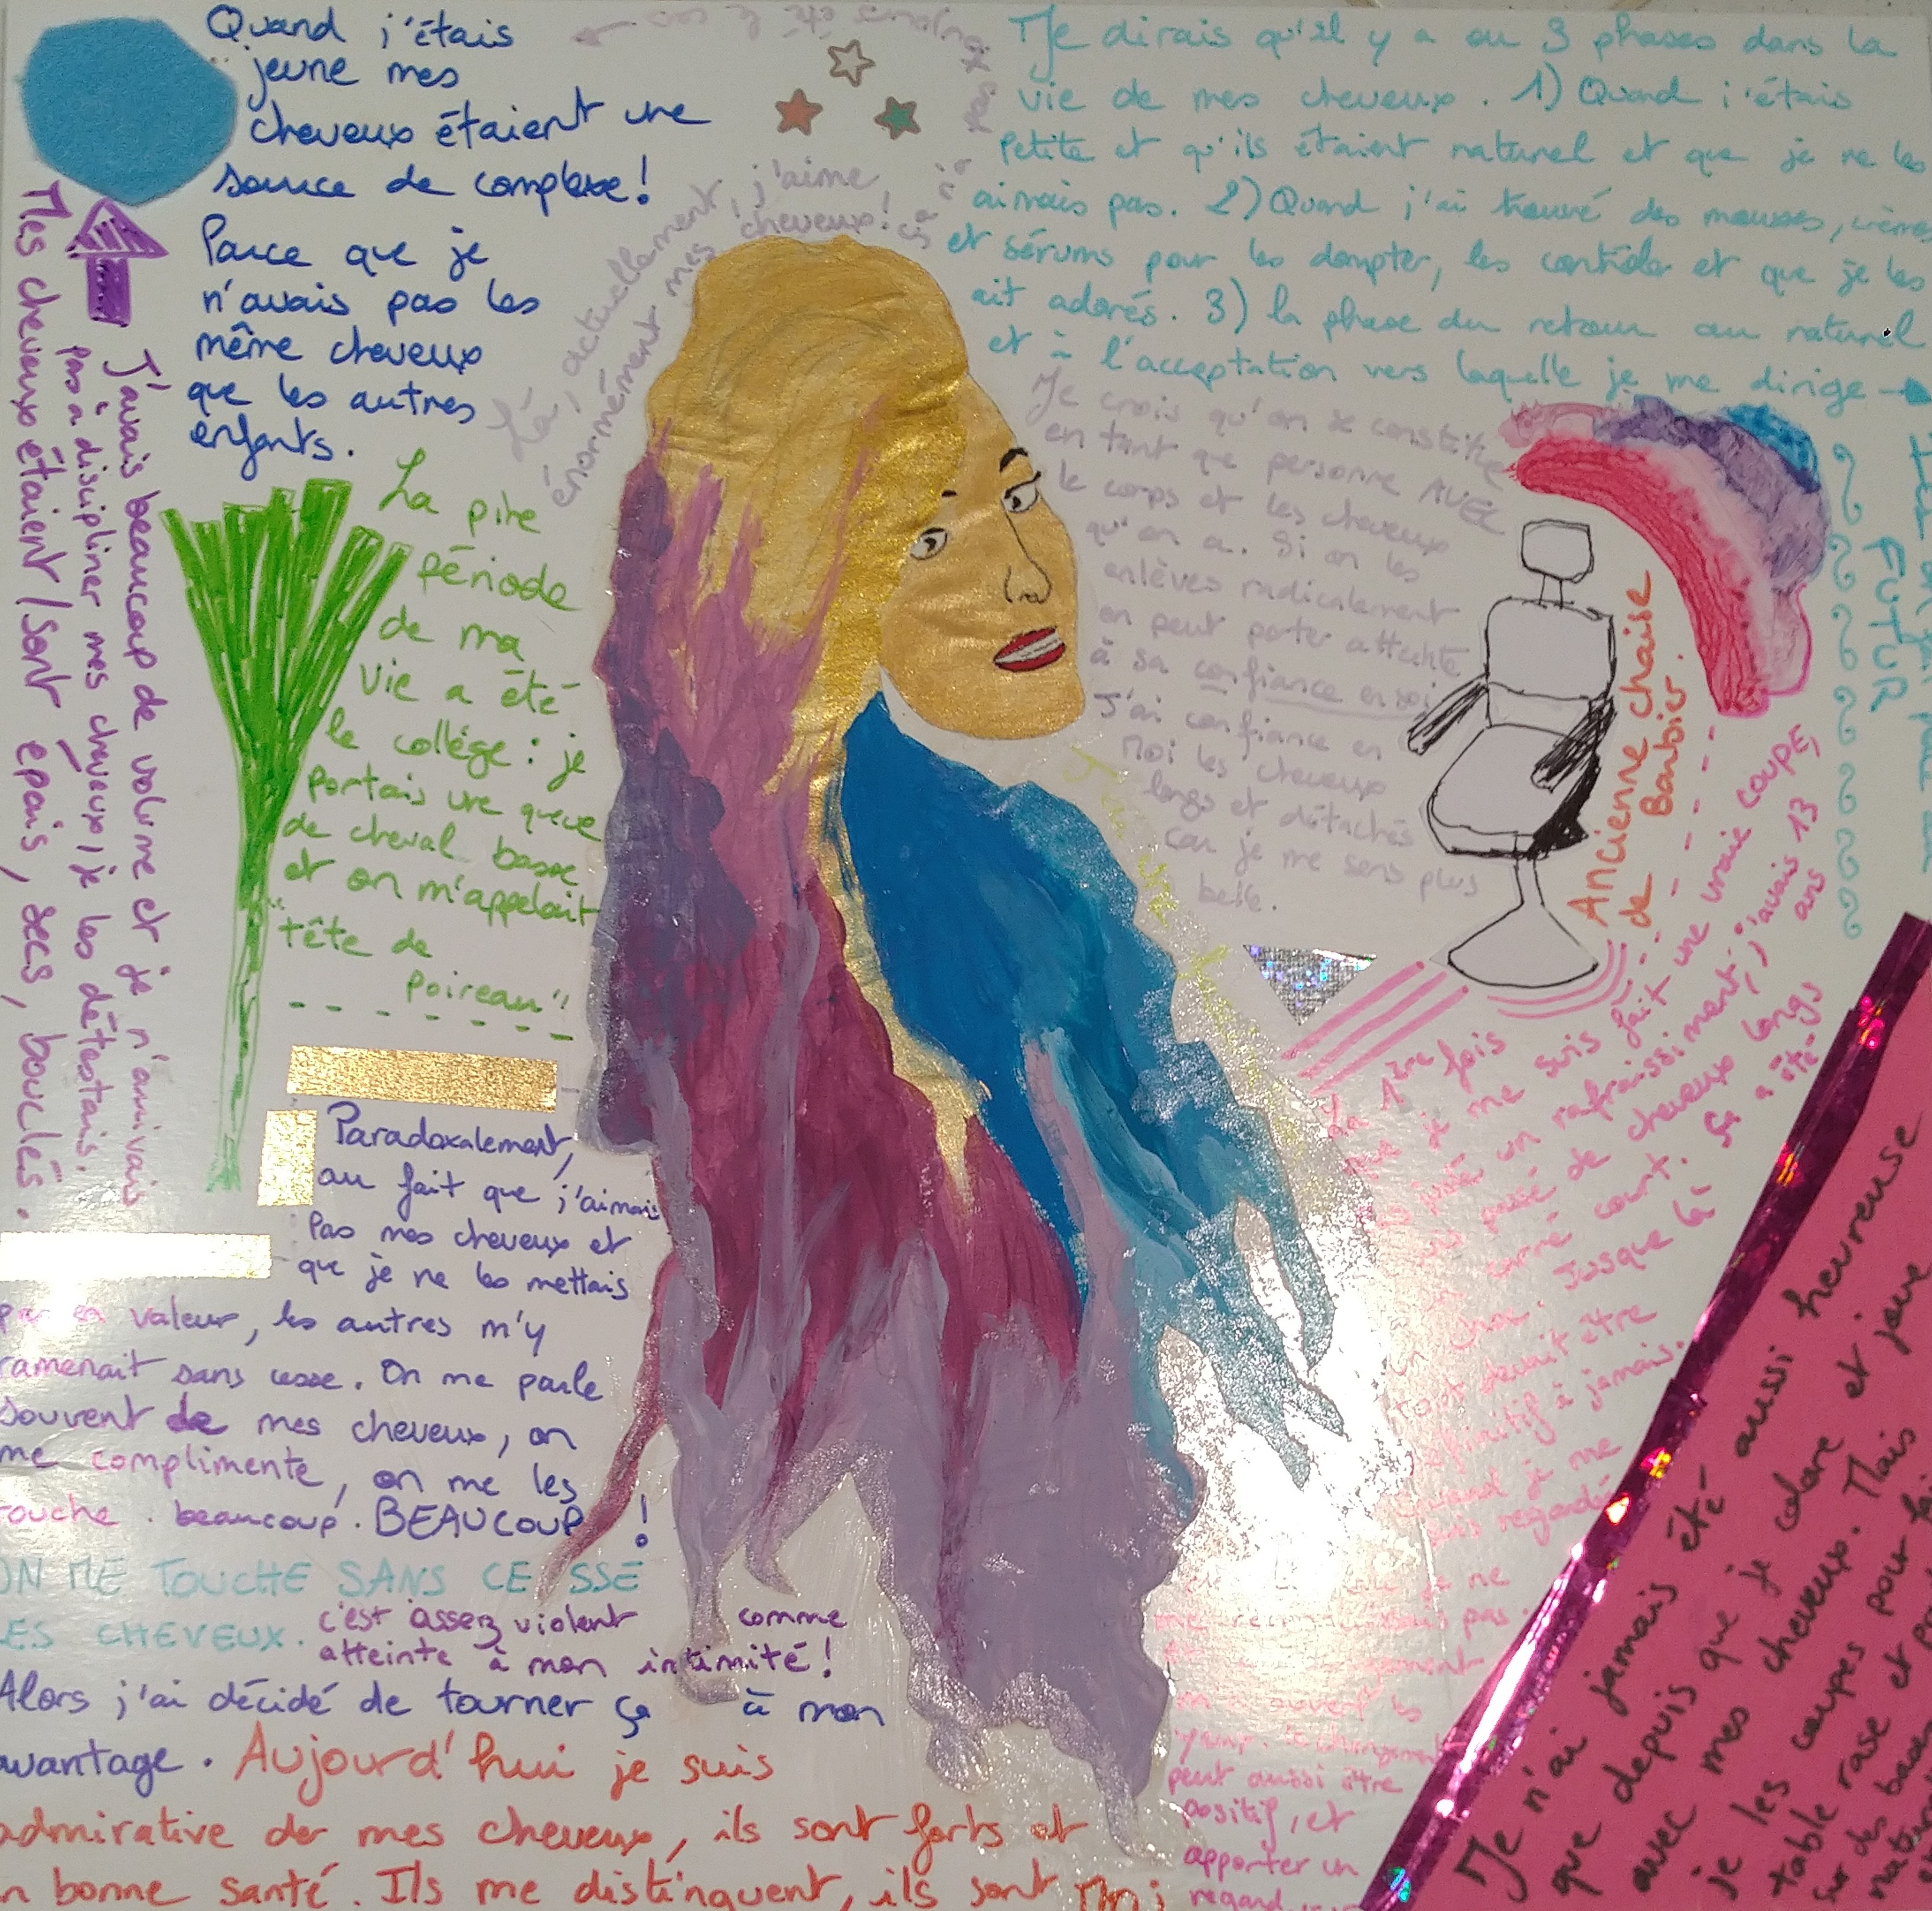 Quand j'étais
jeune mes
cheveux étaient une
source de complexe!
Parce que je
n'avais pas les
même cheveux
que les autres
enfants.
Mes cheveux étaient / sont épais, secs, bouclés.
J'avais beaucoup de volume et je n'arrivais
pas à discipliner mes cheveux, je les détestais.
La pire
période
de ma
vie a été
le collége : je
portais une queue
de cheval basse
et on m'appelait
"tête de
poireau"!
Paradoxalement,
au fait que j'aimais
pas mes cheveux et
que je ne les mettais
pas en valeur, les autres m'y
ramenait sans cesse. On me parle
souvent de mes cheveux, on
me complimente, on me les
touche. beaucoup. BEAUCOUP !
ON ME TOUCHE SANS CESSE
LES CHEVEUX. c'est assez violent comme
atteinte à mon intimité!
Alors j'ai décidé de tourner ça à mon
avantage. Aujourd'hui je suis
admirative der mes cheveux, ils sont forts et
en bonne santé. Ils me distinguent, ils sont Moi
Là, actuellement, j'aime
énormément mes cheveux! ça
n'a pas
toujours été le cas
Je dirais qu'il y a eu 3 phases dans la
vie de mes cheveux. 1) Quand j'étais
petite et qu'ils étaient naturel et que je ne les
aimais pas. 2) Quand j'ai trouvé des mousses, crèmes
et sérums pour les dompter, les contrôler et que je les
ait adorés. 3) la phase du retour au naturel
et à l'acceptation vers laquelle je me dirige
FUTUR
Je crois qu'on se constitue
en tant que personne AVEC
le corps et les cheveux
qu'on a. Si on les
enlèves radicalement
on peut porter atteinte
à sa confiance en soi
J'ai confiance en
Moi les cheveux
longs et détachés
car je me sens plus
belle.
Ancienne chaise
de Barbier.
La 1ère fois
que je me suis fait une vraie coupe,
pas juste un rafraissiment, j'avais 13 ans
suis passé de cheveux longs
un carré court. Ça a été
un choc. Jusque là
tout devait être
définitif à jamais.
Quand je me
suis regardé
je ne
me reconnaissais pas.
ouvert les
yeux. Le changement
peut aussi être
positif, et
apporter un
regard
Je n'ai jamais été aussi heureuse
que depuis que je colore et joue
avec mes cheveux. Mais
je les coupes pour
table rase et
sur des